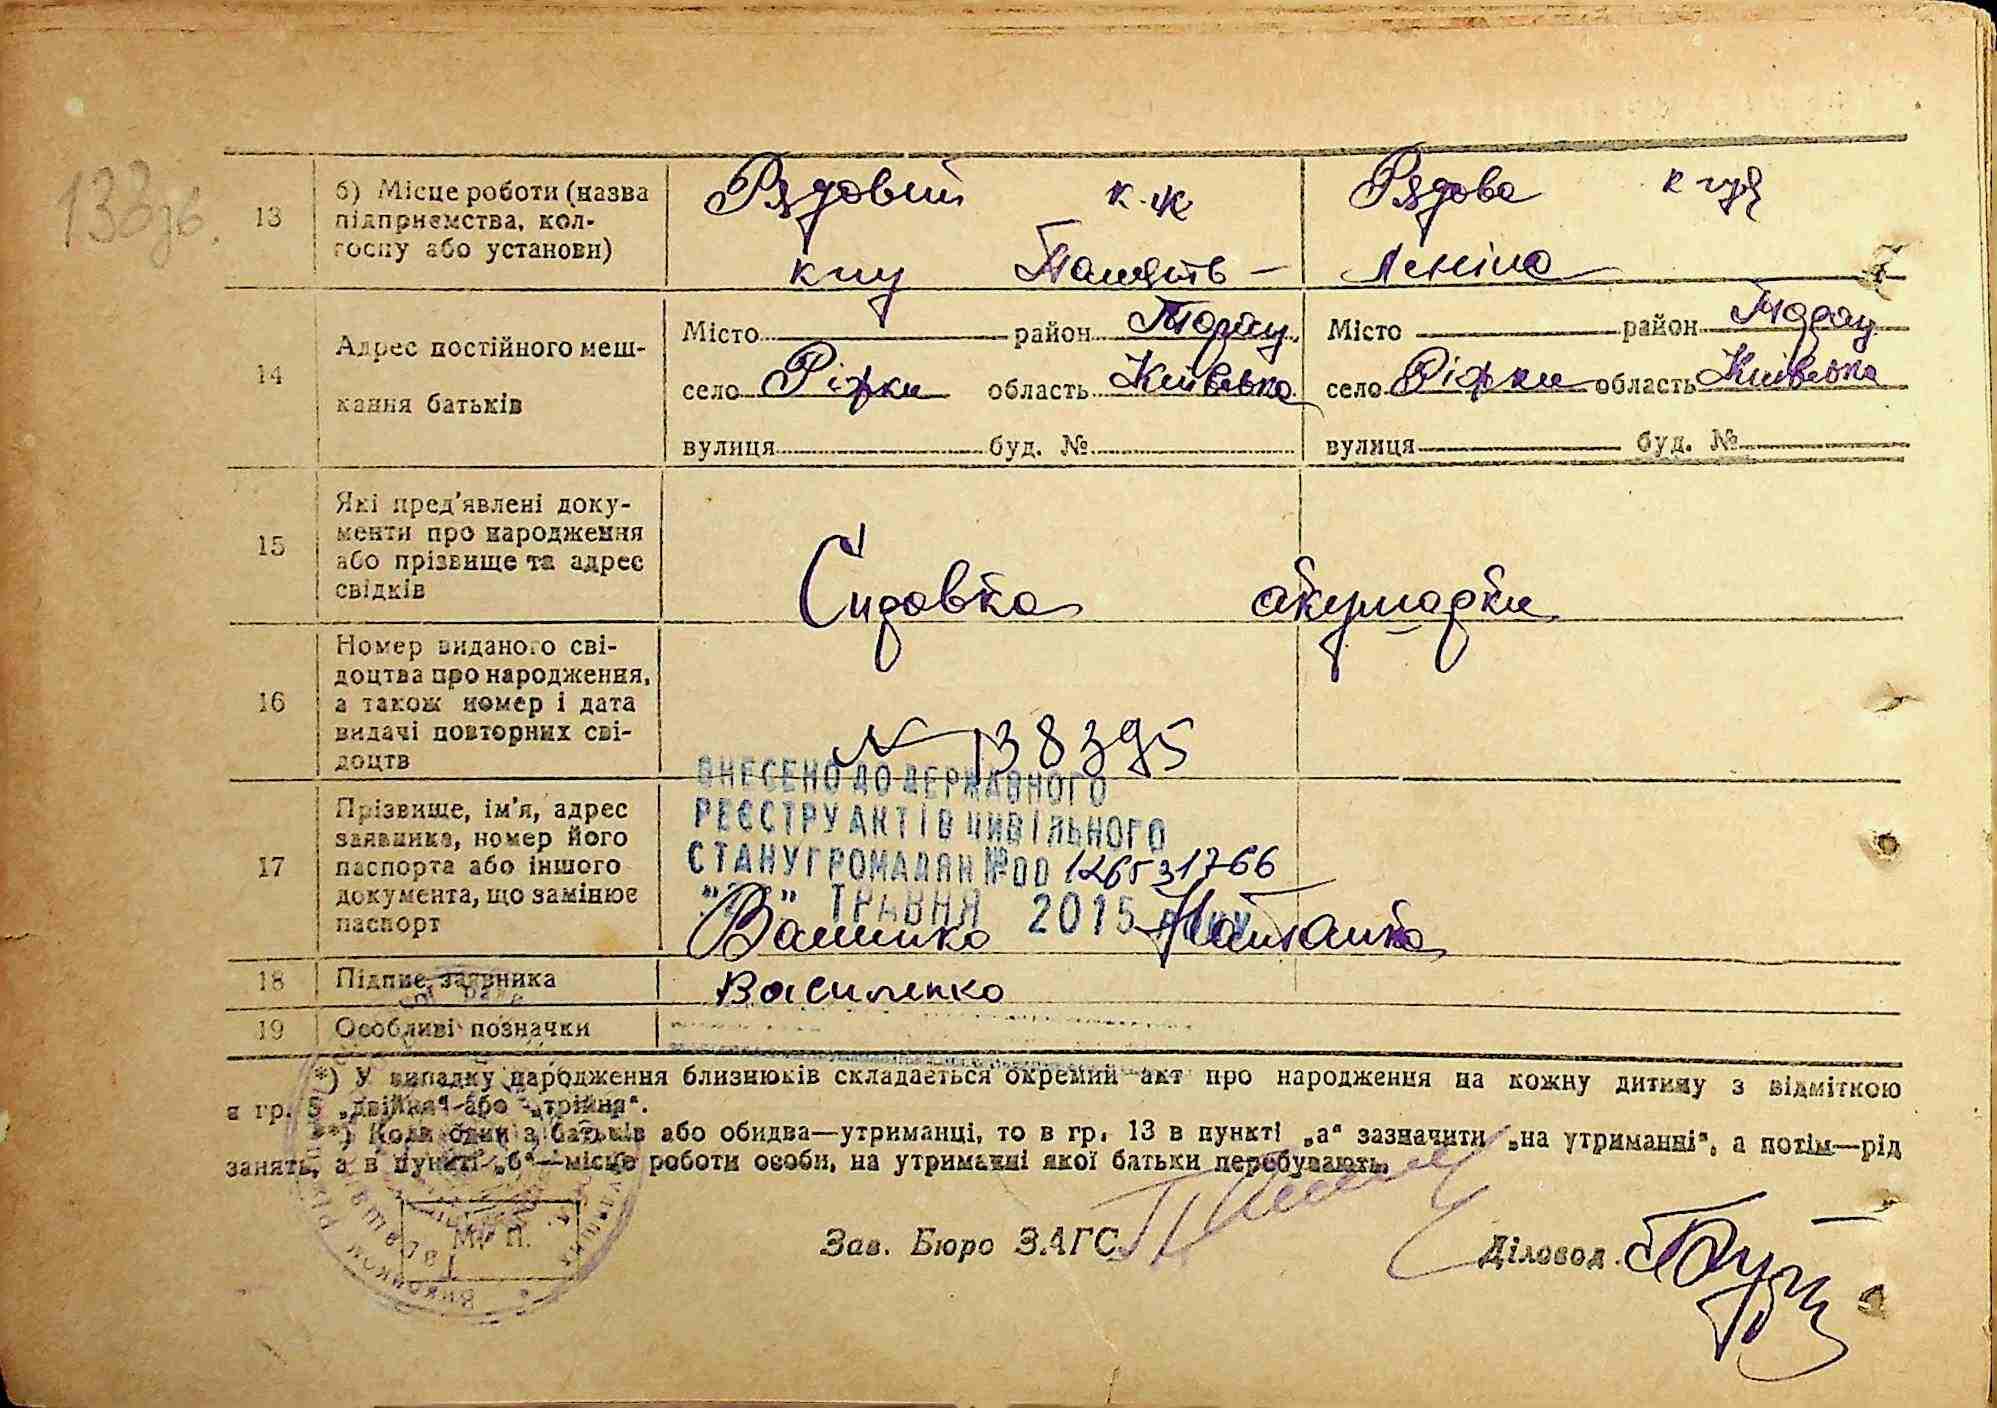 133зв.
13 б) Місце роботи (назва підприємства, колгоспу або установи)
Рядовий к.ж
кгу Память —
Рядова кгу
Леніна
14 Адрес постійного мешкання батьків
Місто район Таращ.
село Ріжки область Київська
вулиця буд. №
Місто район Таращ
село Ріжки область Київська
вулиця буд. №
15 Які пред'явлені документи про народження або прізвище та адрес свідків
Справка акушарки
16 Номер виданого свідоцтва про народження, а також номер і дата видачі повторних свідоцтв
№ 138395
ВНЕСЕНО ДО ДЕРЖАВНОГО
РЕЄСТРУ АКТІВ ЦИВІЛЬНОГО
СТАНУ ГРОМАДЯН № 00126531766
ТРАВНЯ 2015 року
17 Прізвище, ім'я, адрес заявника, номер його паспорта або іншого документа, що замінює паспорт
18 Підпис заявника
Василенко
19 Особливі позначки
*) У випадку народження близнюків складається окремий акт про народження на кожну дитину з відміткою
в гр. 5 „двійня" або „трійня".
**) Коли один з батьків або обидва—утриманці, то в гр. 13 в пункті „а" зазначити „на утриманні", а потім—рід
занять, а в пункті „б"—місце роботи особи, на утриманні якої батьки перебувають.
М. П.
Зав. Бюро ЗАГС
Діловод